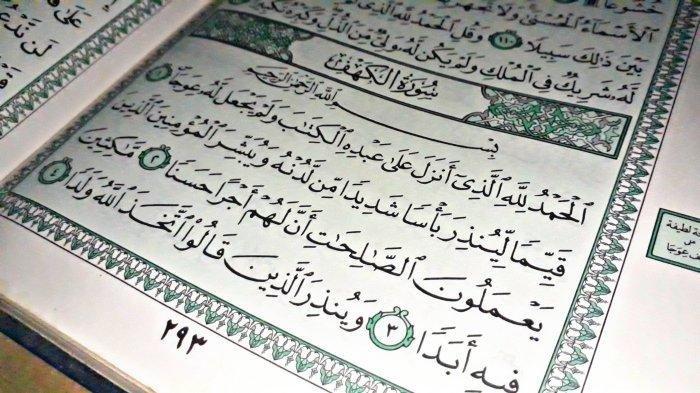 ٱلْأَسْمَآءُ ٱلْحُسْنَىٰ وَلَا تَجْهَرْ
بَيْنَ ذَٰلِكَ سَبِيلًا ١١٠ وَقُلِ ٱلْحَمْدُ لِلَّهِ ٱلَّذِى
لَّهُۥ شَرِيكٌ فِى ٱلْمُلْكِ وَلَمْ يَكُن لَّهُۥ وَلِىٌّ مِّنَ ٱلذُّلِّ وَكَبِّرْهُ تَكْبِيرًا
سُورَةُ ٱلْكَهْفِ
بِسْمِ ٱللَّهِ ٱلرَّحْمَٰنِ ٱلرَّحِيمِ
ٱلْحَمْدُ لِلَّهِ ٱلَّذِىٓ أَنزَلَ عَلَىٰ عَبْدِهِ ٱلْكِتَٰبَ وَلَمْ يَجْعَل لَّهُۥ عِوَجًا ١
قَيِّمًا لِّيُنذِرَ بَأْسًا شَدِيدًا مِّن لَّدُنْهُ وَيُبَشِّرَ ٱلْمُؤْمِنِينَ ٱلَّذِينَ
يَعْمَلُونَ ٱلصَّٰلِحَٰتِ أَنَّ لَهُمْ أَجْرًا حَسَنًا ٢ مَّٰكِثِينَ
فِيهِ أَبَدًا ٣ وَيُنذِرَ ٱلَّذِينَ قَالُوا۟ ٱتَّخَذَ ٱللَّهُ وَلَدًا ٤
٢٩٣